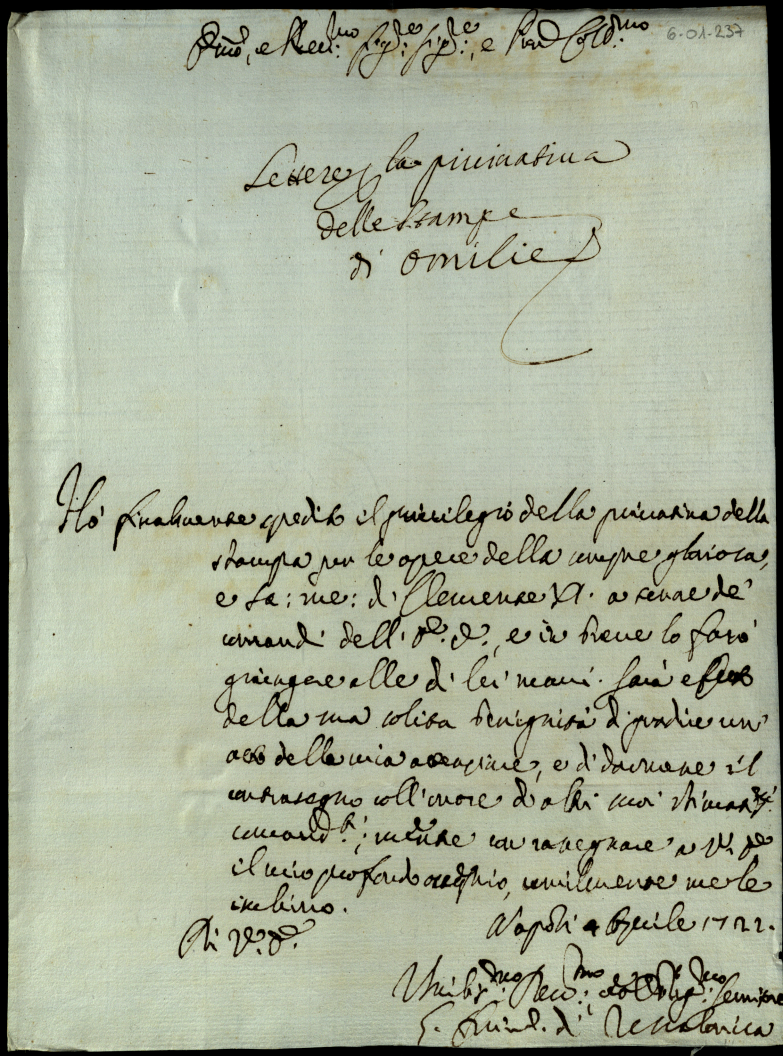 6-01-237
Em̃o, e Reu:mo Sig:re Sig:re, e P̃ron Coll:mo
Lettere la privativa
delle stampe
di Omilie
Hò finalmente spedito il privilegio della privativa della
stampa per le opere della sempre gloriosa,
e sa: me: di Clemente XI. a tenore de'
comandi dell' , e in breve lo farò
giungere alle di lei mani. Sarà effetto
della sua solita benignità di gradire un'
atto della mia attenzione, e di darmene il
contrasegno coll'onore di altri suoi stimatiss:
comandi; mentre con rasegnare a V: 
il mio profondo ossequio, umilmente me le
inchino.
Napoli 4 Aprile 1722.
Di V:
Umiliss:mo Deu:mo ed Obblig:mo Servitore
di Tessalonica